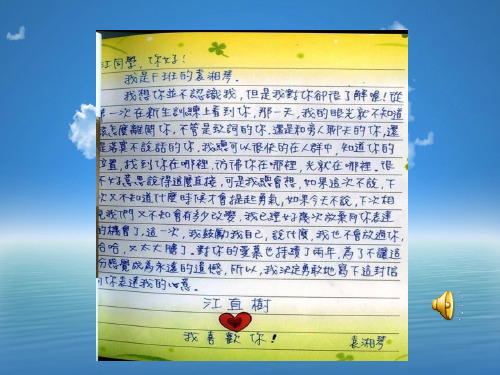 江同學, 你好!
我是F班的袁湘琴。
我想你並不認識我, 但是我對你卻很了解喔! 從
第一次在新生訓練上看到你, 那一天, 我的眼光就不知道
該怎麼離開你, 不管是致詞的你, 還是和旁人聊天的你, 還
是落寞不說話的你, 我總可以很快的在人群中, 知道你的
位置, 找到你在哪裡, 彷彿你在哪裡, 光就在哪裡。很
不好意思說得這麼直接, 可是我總會想, 如果這次不說, 下
次又不知道什麼時候才會提起勇氣, 如果今天不說, 下次相
見我們又不知會有多少改變, 我已經好幾次放棄向你表達
的機會了, 這一次, 我鼓勵我自己, 說什麼, 我也不會放過你,
哈哈, 又太大膽了。對你的愛慕也持續了兩年, 為了不讓這
份感覺成為永遠的遺憾, 所以, 我決定勇敢地寫下這封信
向你表達我的心意。
江直樹
我喜歡你!
袁湘琴